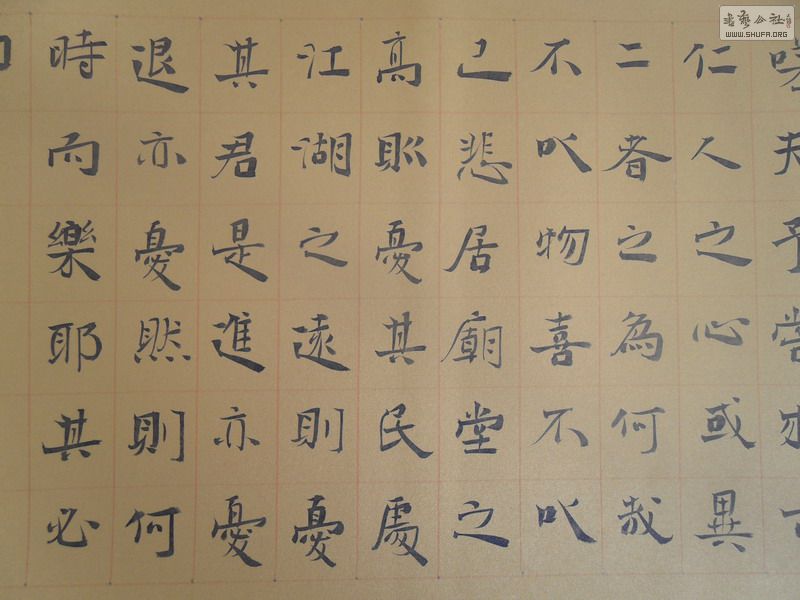 夫予嘗求
仁人之心或異
二者之為何哉
不以物喜不以
己悲居廟堂之
高則憂其民處
江湖之遠則憂
其君是進亦憂
退亦憂然則何
時而樂耶其必
书艺公社
WWW.SHUFA.ORG